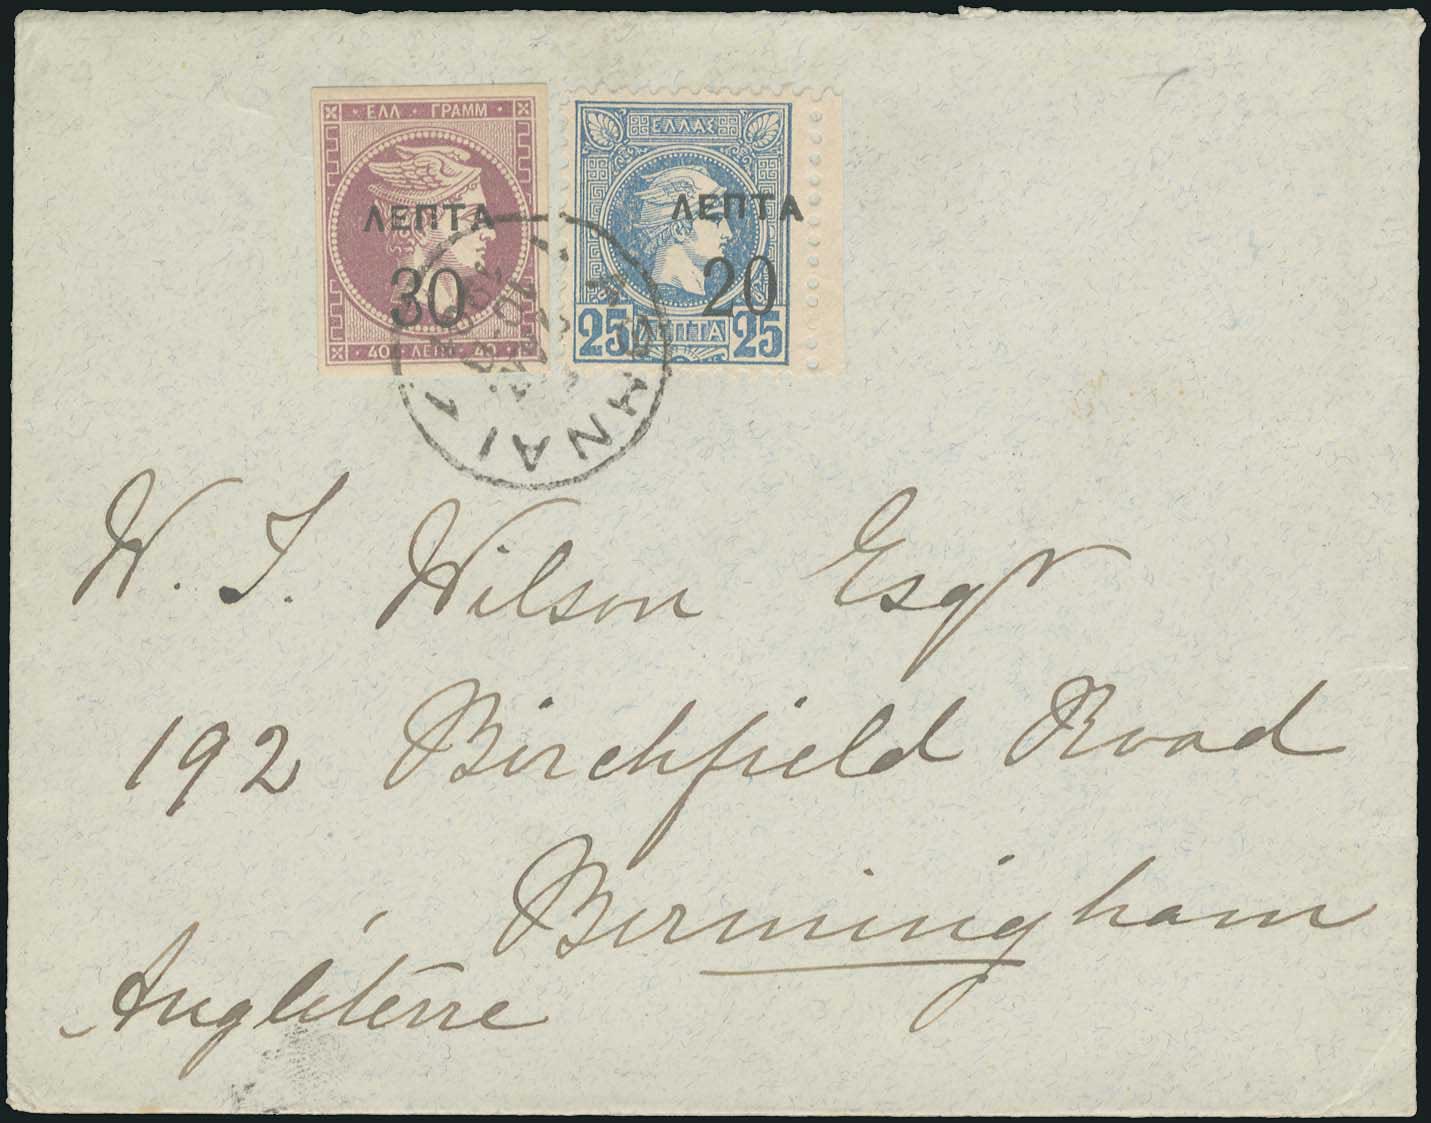 ΕΛΛ · ΓΡΑΜΜ
ΛΕΠΤΑ
30
40 ΛΕΠ. 40
ΕΛΛΑΣ
ΛΕΠΤΑ
20
25 ΛΕΠΤΑ 25
ΑΘΗΝΑΙ 1
W. T. Wilson Esqr
192 Birchfield Road
Birmingham
Angleterre